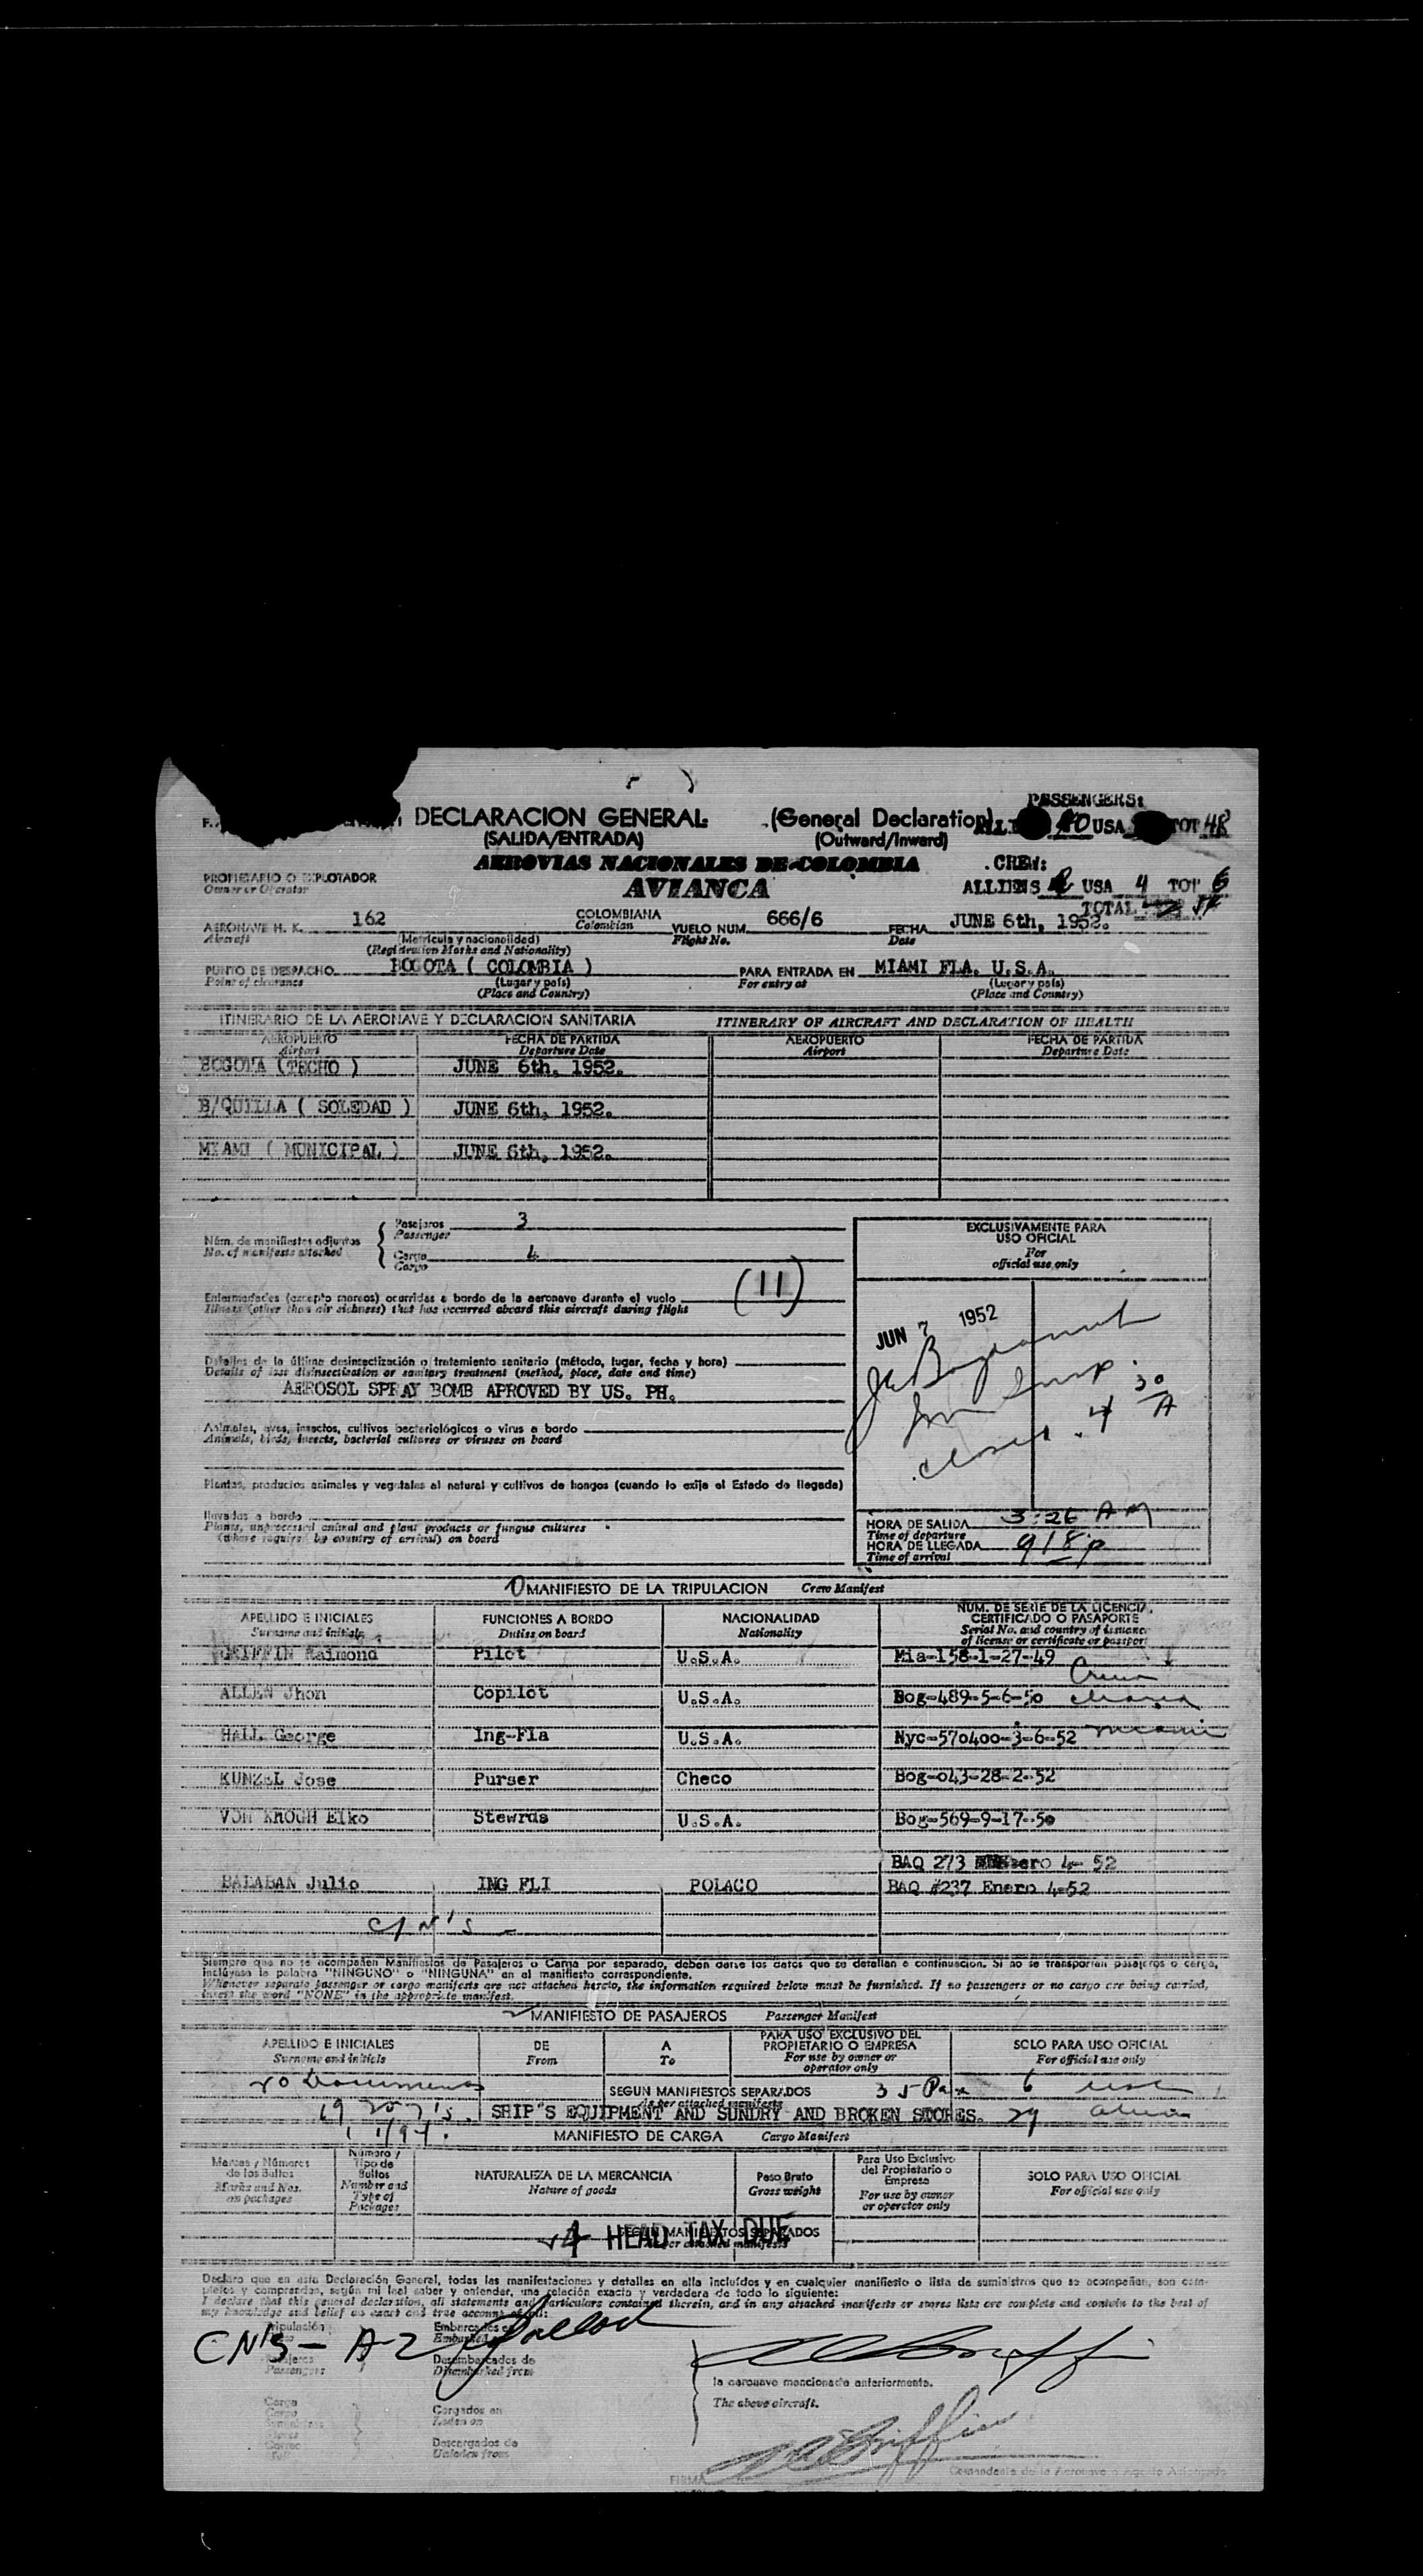 PASSENGERS:
DECLARACION GENERAL (General Declaration)
(SALIDA/ENTRADA) (Outward/Inward)
USA TOT 48
AEROVIAS NACIONALES DE COLOMBIA
AVIANCA
CREW:
PROPIETARIO O EXPLOTADOR
Owner or Operator
ALLIENS 2 USA 4 TOT 6
TOTAL 54
AERONAVE H. K. 162 COLOMBIANA VUELO NUM. 666/6 FECHA JUNE 6th, 1952.
Aircraft Colombian Flight No. Date
(Matrícula y nacionalidad)
(Registration Marks and Nationality)
PUNTO DE DESPACHO BOGOTA ( COLOMBIA ) PARA ENTRADA EN MIAMI FLA. U.S.A.
Point of clearance (Lugar y país) For entry at (Lugar y país)
(Place and Country) (Place and Country)
ITINERARIO DE LA AERONAVE Y DECLARACION SANITARIA ITINERARY OF AIRCRAFT AND DECLARATION OF HEALTH
AEROPUERTO FECHA DE PARTIDA AEROPUERTO FECHA DE PARTIDA
Airport Departure Date Airport Departure Date
BOGOTA (TECHO ) JUNE 6th, 1952.
B/QUILLA ( SOLEDAD ) JUNE 6th, 1952.
MIAMI ( MUNICIPAL ) JUNE 6th, 1952.
Núm. de manifiestos adjuntos
No. of manifests attached
Pasajeros 3
Passenger
Carga 4
Cargo
EXCLUSIVAMENTE PARA
USO OFICIAL
For
official use only
Enfermedades (excepto mareos) ocurridas a bordo de la aeronave durante el vuelo (11)
Illness (other than air sickness) that has occurred aboard this aircraft during flight
JUN 7 1952
Detalles de la última desinsectización o tratamiento sanitario (método, lugar, fecha y hora)
Details of last disinsectization or sanitary treatment (method, place, date and time)
AEROSOL SPRAY BOMB APROVED BY US. PH.
Imm Insp.
closed 4 30 A
Animales, aves, insectos, cultivos bacteriológicos o virus a bordo
Animals, birds, insects, bacterial cultures or viruses on board
Plantas, productos animales y vegetales al natural y cultivos de hongos (cuando lo exija el Estado de llegada)
llevados a bordo
Plants, unprocessed animal and plant products or fungus cultures
(where required by country of arrival) on board
HORA DE SALIDA 3:26 AM
Time of departure
HORA DE LLEGADA 918p
Time of arrival
MANIFIESTO DE LA TRIPULACION Crew Manifest
APELLIDO E INICIALES FUNCIONES A BORDO NACIONALIDAD NUM. DE SERIE DE LA LICENCIA, CERTIFICADO O PASAPORTE
Surname and initials Duties on board Nationality Serial No. and country of issuance of license or certificate or passport
GRIFFIN Raimond Pilot U.S.A. Mia-158-1-27-49
ALLEN Jhon Copilot U.S.A. Bog-489-5-6-50
HALL George Ing-Fla U.S.A. Nyc-570400-3-6-52
KUNZEL Jose Purser Checo Bog-043-28-2-52
VON KROGH Elko Stewrds U.S.A. Bog-569-9-17-50
BAQ 273 4- 52
BALABAN Julio ING FLI POLACO BAQ #237 Enero 4-52
Siempre que no se acompañen Manifiestos de Pasajeros o Carga por separado, deben darse los datos que se detallan a continuación. Si no se transportan pasajeros o carga,
inclúyase la palabra "NINGUNO" o "NINGUNA" en el manifiesto correspondiente.
Whenever separate passenger or cargo manifests are not attached hereto, the information required below must be furnished. If no passengers or no cargo are being carried,
insert the word "NONE" in the appropriate manifest.
MANIFIESTO DE PASAJEROS Passenger Manifest
APELLIDO E INICIALES DE A PARA USO EXCLUSIVO DEL PROPIETARIO O EMPRESA SOLO PARA USO OFICIAL
Surname and initials From To For use by owner or operator only For official use only
SEGUN MANIFIESTOS SEPARADOS 35 Pax 6
As per attached manifests
SHIP"S EQUIPMENT AND SUNDRY AND BROKEN STORES. 29
MANIFIESTO DE CARGA Cargo Manifest
Marcas y Números de los Bultos Número y Tipo de Bultos NATURALEZA DE LA MERCANCIA Peso Bruto Para Uso Exclusivo del Propietario o Empresa SOLO PARA USO OFICIAL
Marks and Nos. on packages Number and Type of Packages Nature of goods Gross weight For use by owner or operator only For official use only
SEGUN MANIFIESTOS SEPARADOS
4 HEAD TAX DUE
As per attached manifests
Declaro que en esta Declaración General, todas las manifestaciones y detalles en ella incluídos y en cualquier manifiesto o lista de suministros que se acompañen, son completos
y comprenden, según mi leal saber y entender, una relación exacta y verdadera de todo lo siguiente:
I declare that this general declaration, all statements and particulars contained therein, and in any attached manifests or stores lists are complete and contain to the best of
my knowledge and belief an exact and true account of all:
Tripulación Embarcados en
CN's - A-2
Pasajeros Desembarcados de
Passengers Disembarked from
la aeronave mencionada anteriormente.
The above aircraft.
Carga Cargados en
Cargo Laden on
Descargados de
Unladen from
FIRMA
Comandante de la Aeronave o Agente Autorizado